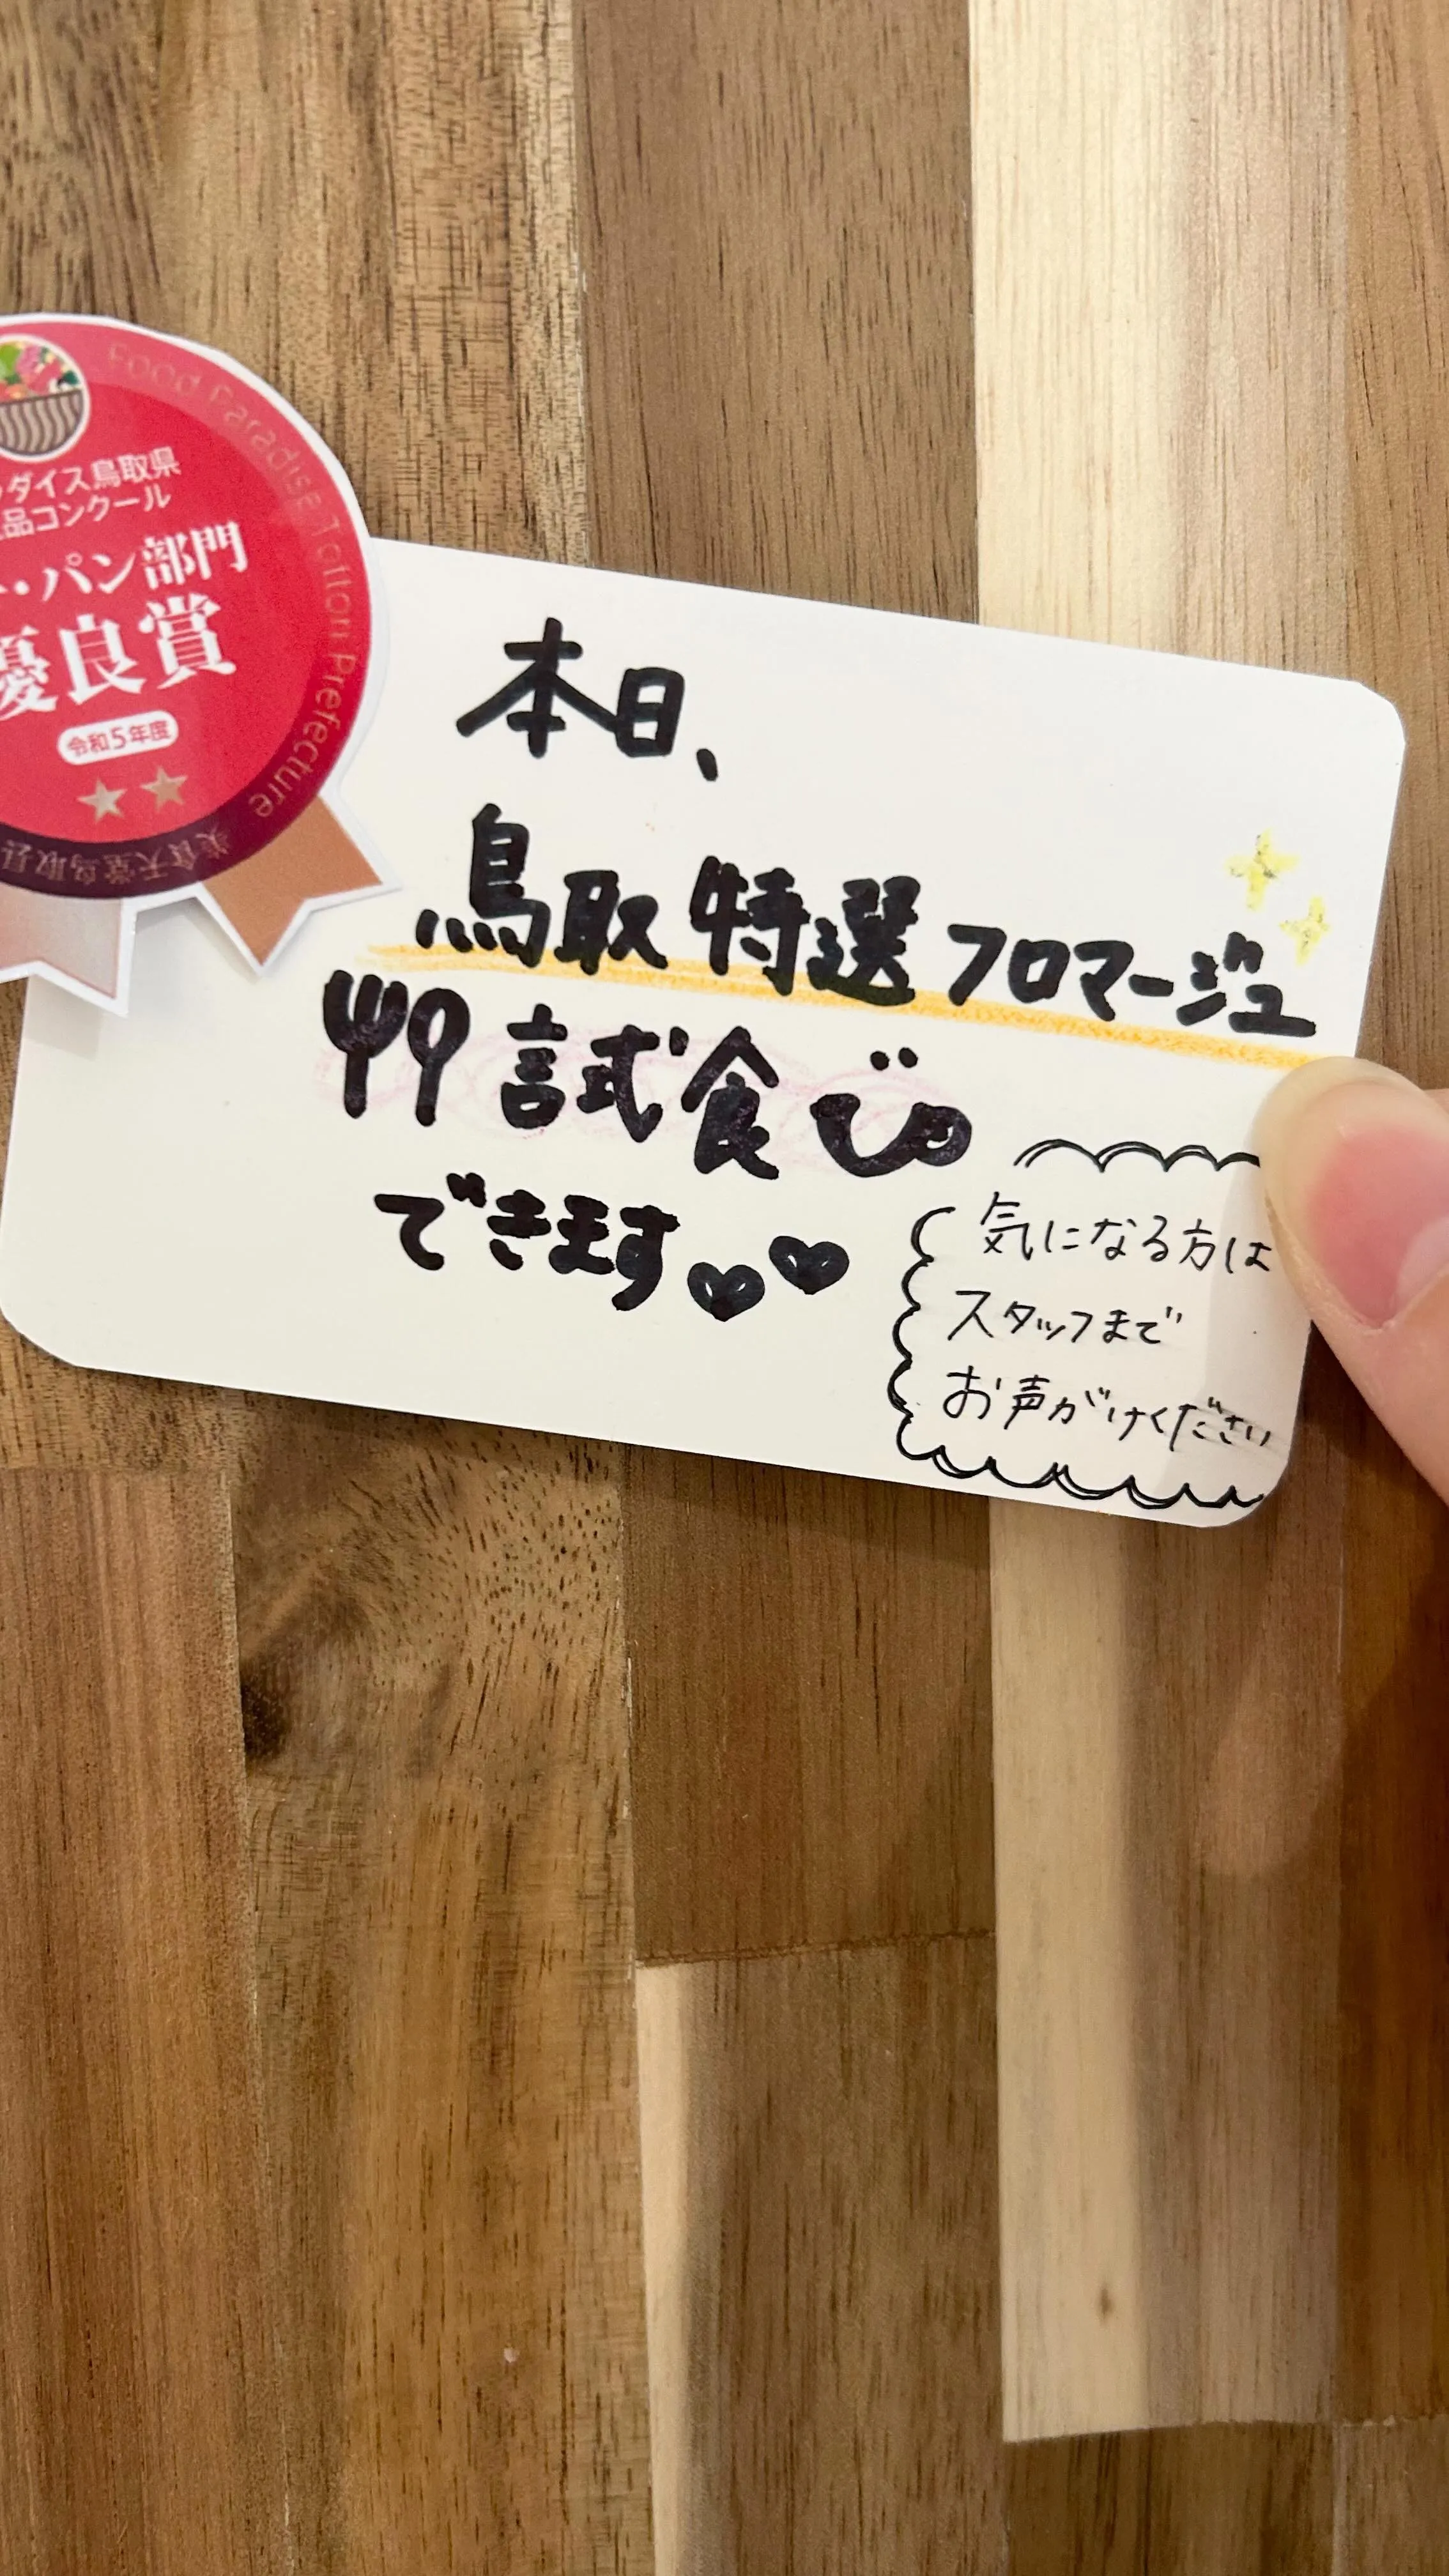 Food Paradise Tottori Prefecture
ダイス鳥取県
品コンクール
・パン部門
優良賞
令和5年度
美食天堂鳥取县
本日、
鳥取特選フロマージュ
試食
できます
気になる方は
スタッフまで
お声がけください